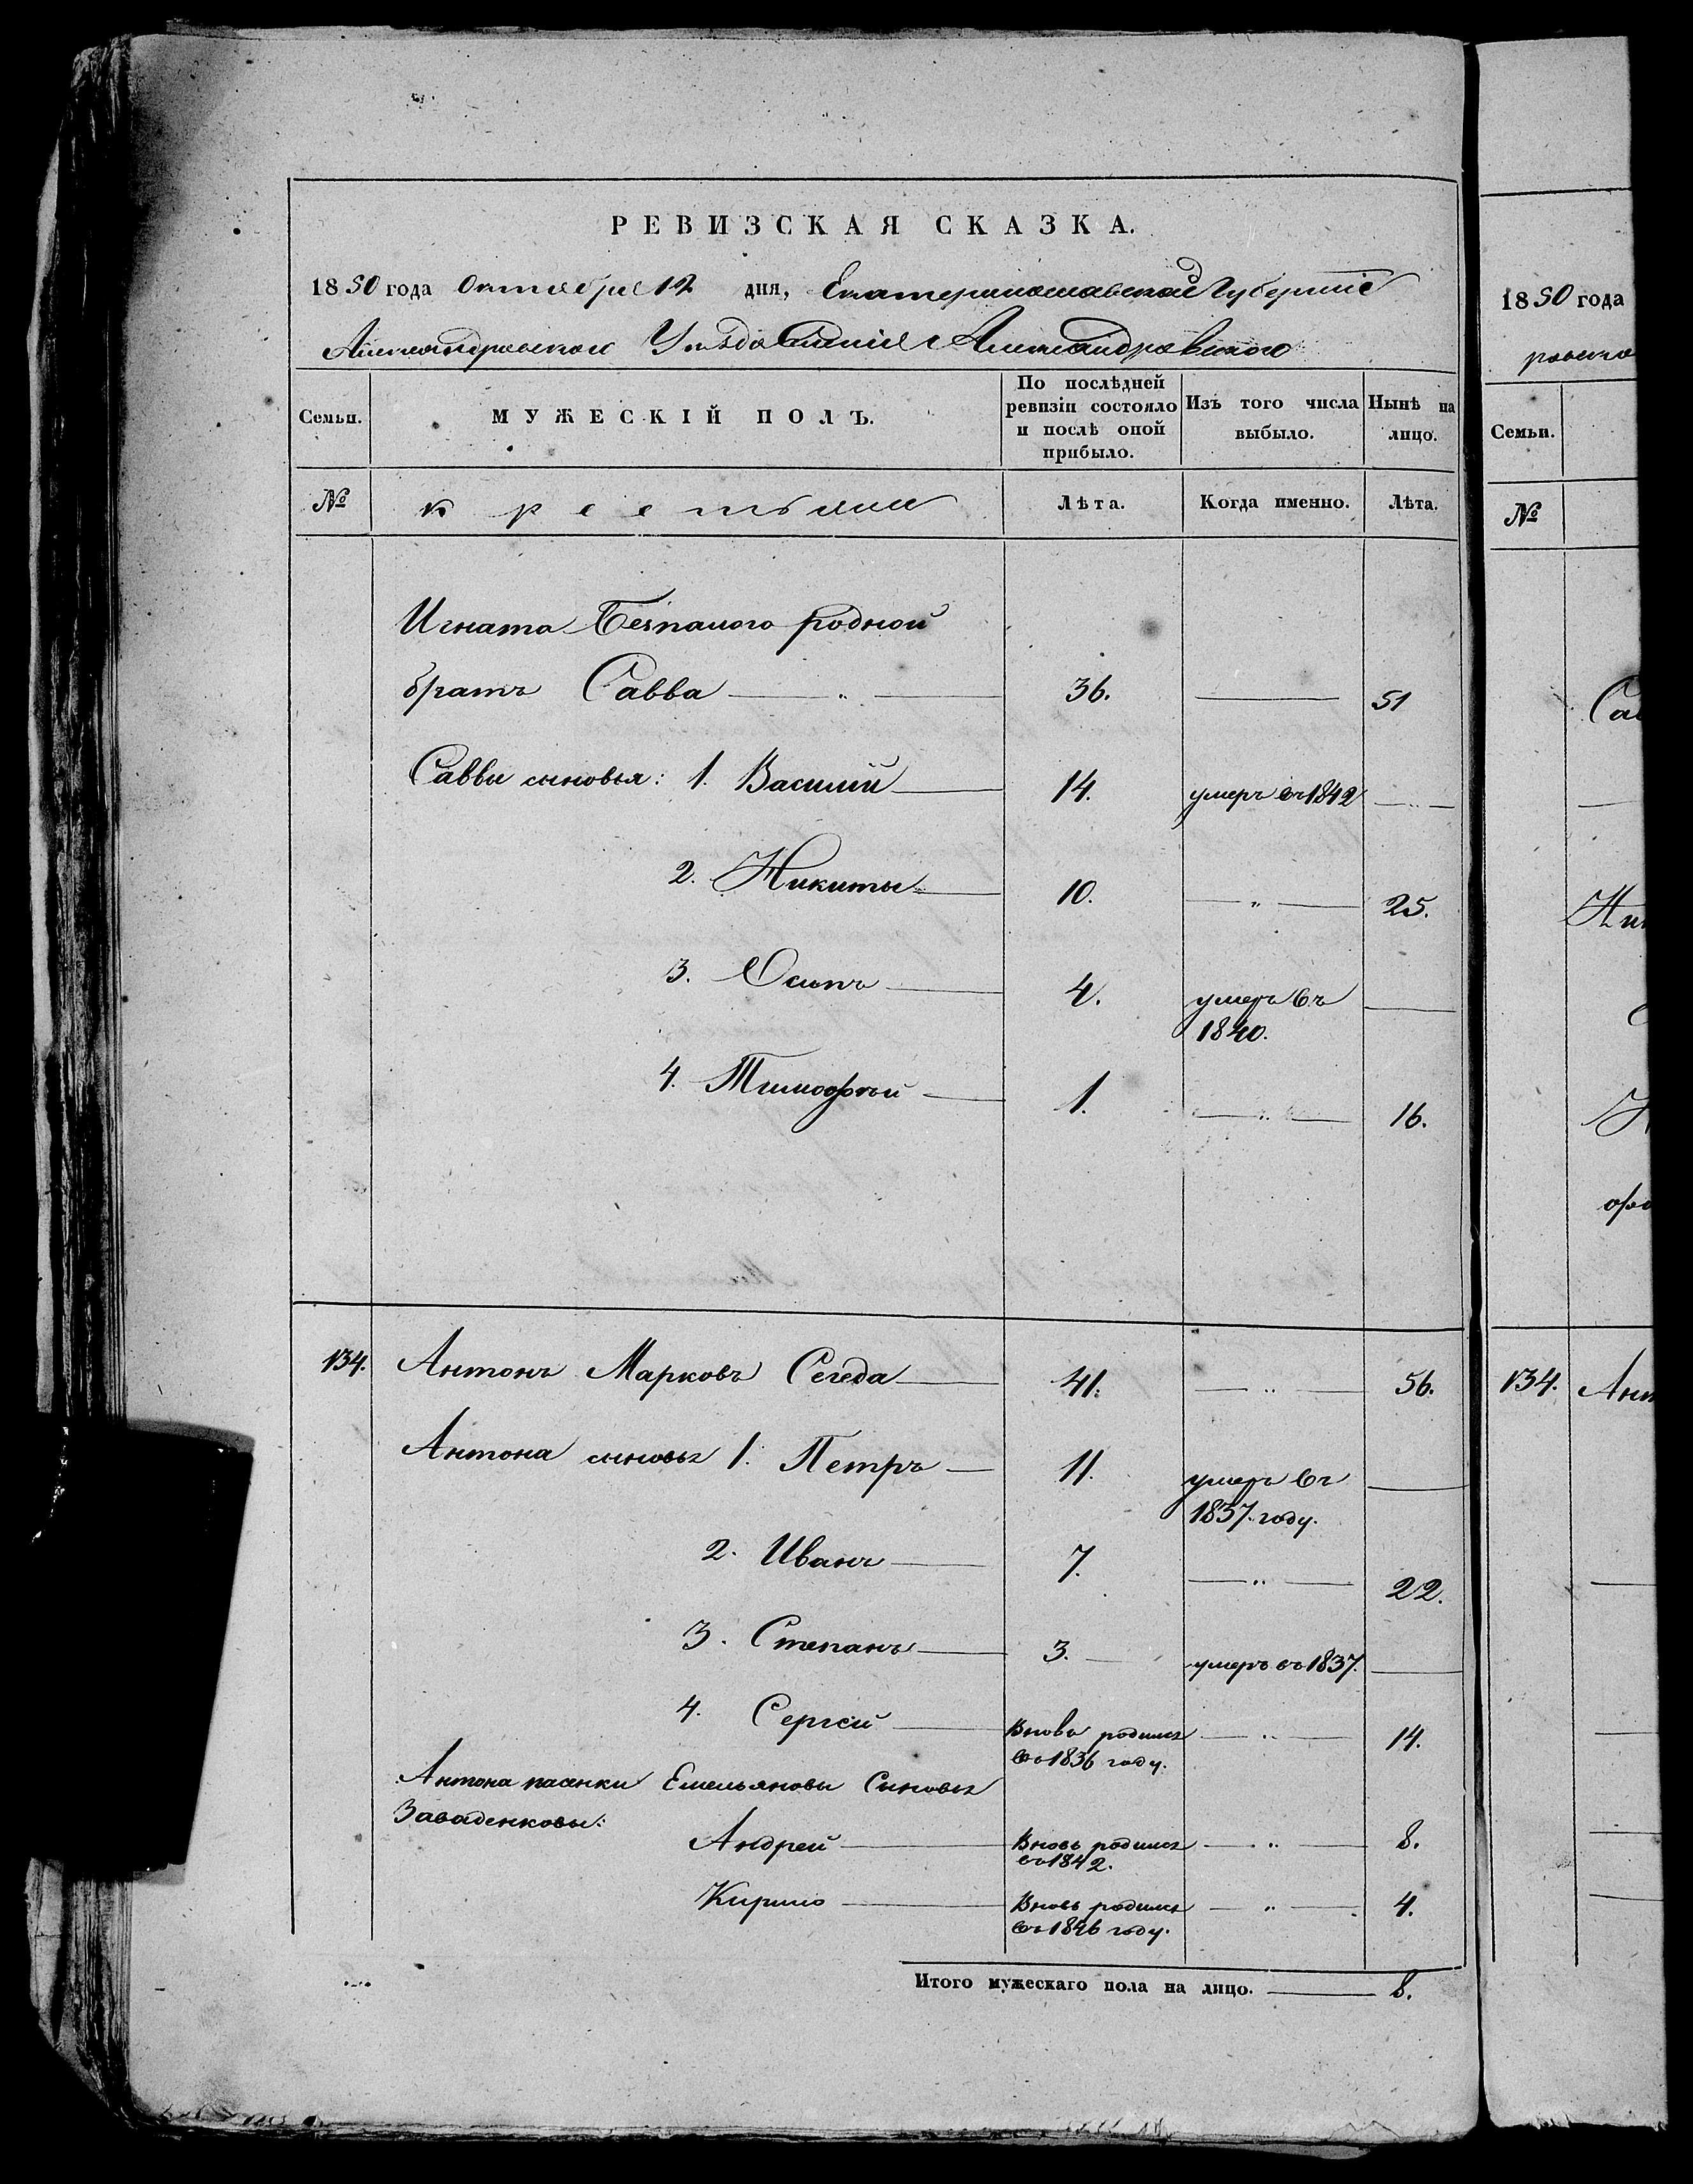 РЕВИЗСКАЯ СКАЗКА.
1850 года Октября 12 дня, Екатеринославской Губернiи
Александровского Уезда Александровского
Семьи. МУЖЕСКІЙ ПОЛЪ. По послѣдней ревизіи состояло и послѣ оной прибыло. Изъ того числа выбыло. Нынѣ на лицо.
№ крестьяни Лѣта. Когда именно. Лѣта.
Игната родной
братъ Савва 36. 51
Саввы сыновья: 1. Василий 14. умеръ въ 1842
2. Никиты 10. 25.
3. Осипъ 4. умеръ въ
1840.
4. Тимофѣй 1. 16.
134. Антонъ Марковъ Сегеда 41. 56.
Антона сыновья 1. Петръ 11. умеръ въ
1837. году.
2. Иванъ 7. 22.
3. Степанъ 3. умеръ въ 1837.
4. Сергей Вновь родился 14.
въ 1836 году.
Антона пасынки Емельяновы Сыновья
Заваденковы:
Андрей Вновь родился 8.
въ 1842.
Кирило Вновь родился 4.
въ 1846 году.
Итого мужескаго пола на лицо. 8.
1850 года
Семьи.
№
134. Ант